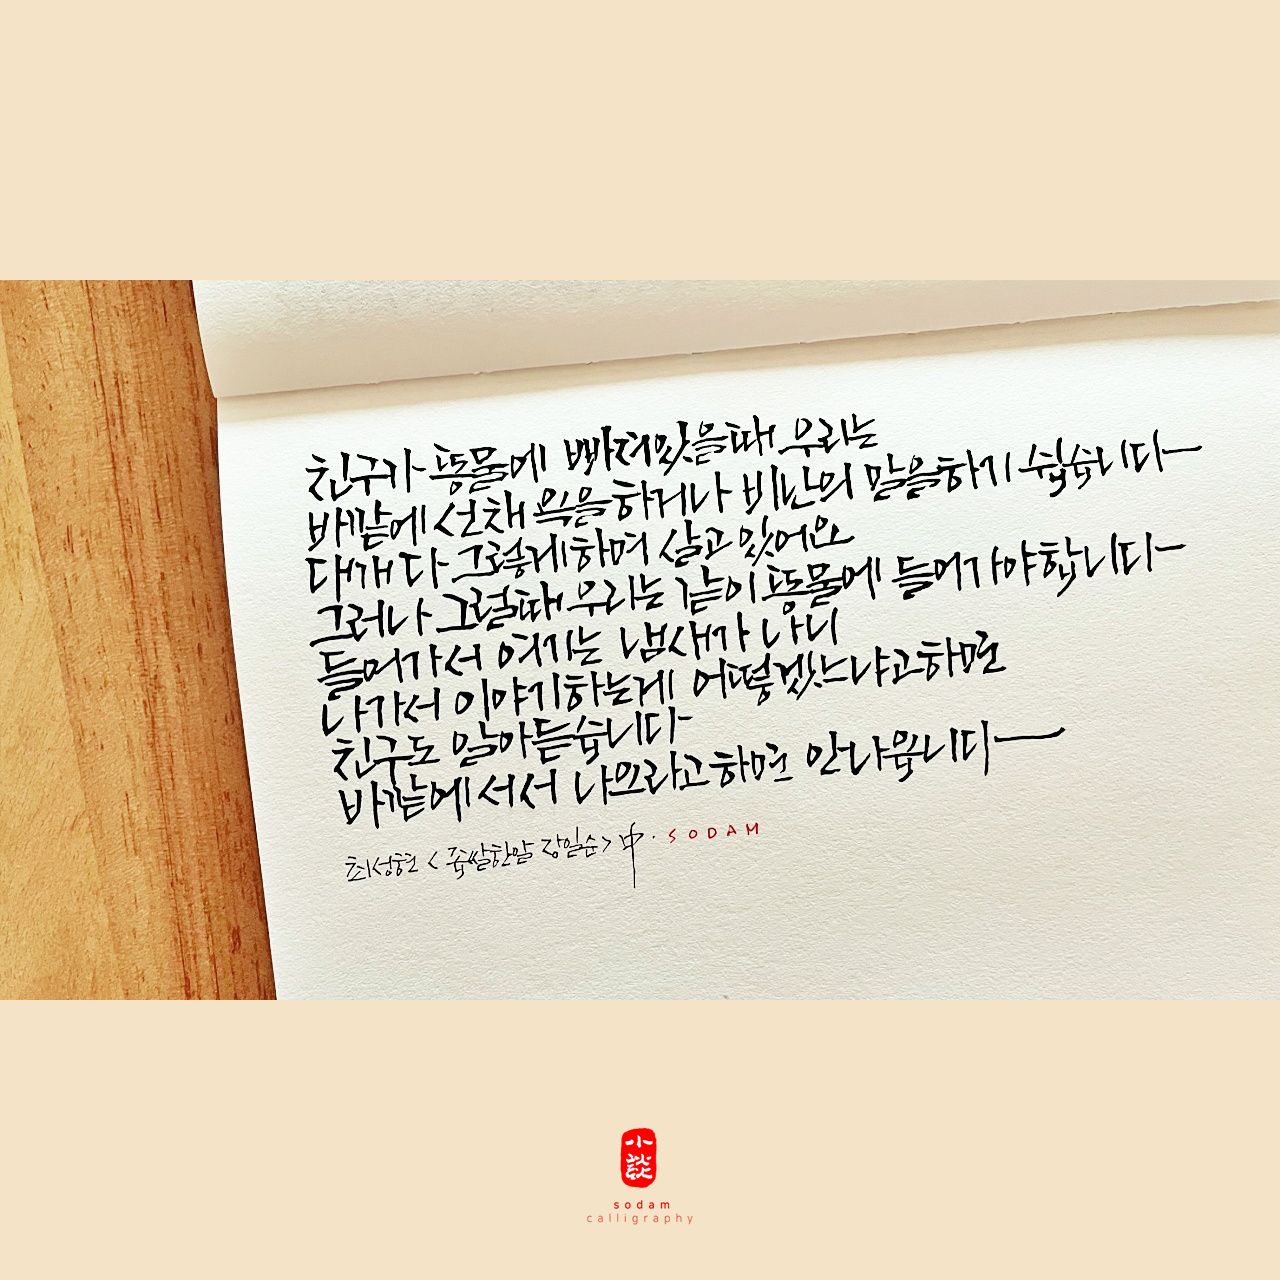 친구가 똥물에 빠져있을때 우리는
바깥에 선채 욕을하거나 비난의 말을하기 쉽습니다
대개 다 그렇게하며 살고 있어요
그러나 그럴때 우리는 같이 똥물에 들어가야합니다
들어가서 여기는 냄새가 나니
나가서 이야기하는게 어떻겠느냐고하면
친구도 알아듣습니다
바깥에 서서 나오라고하면 안나옵니다
최성현 <좁쌀한알 장일순> 中. SODAM
小談
sodam
calligraphy